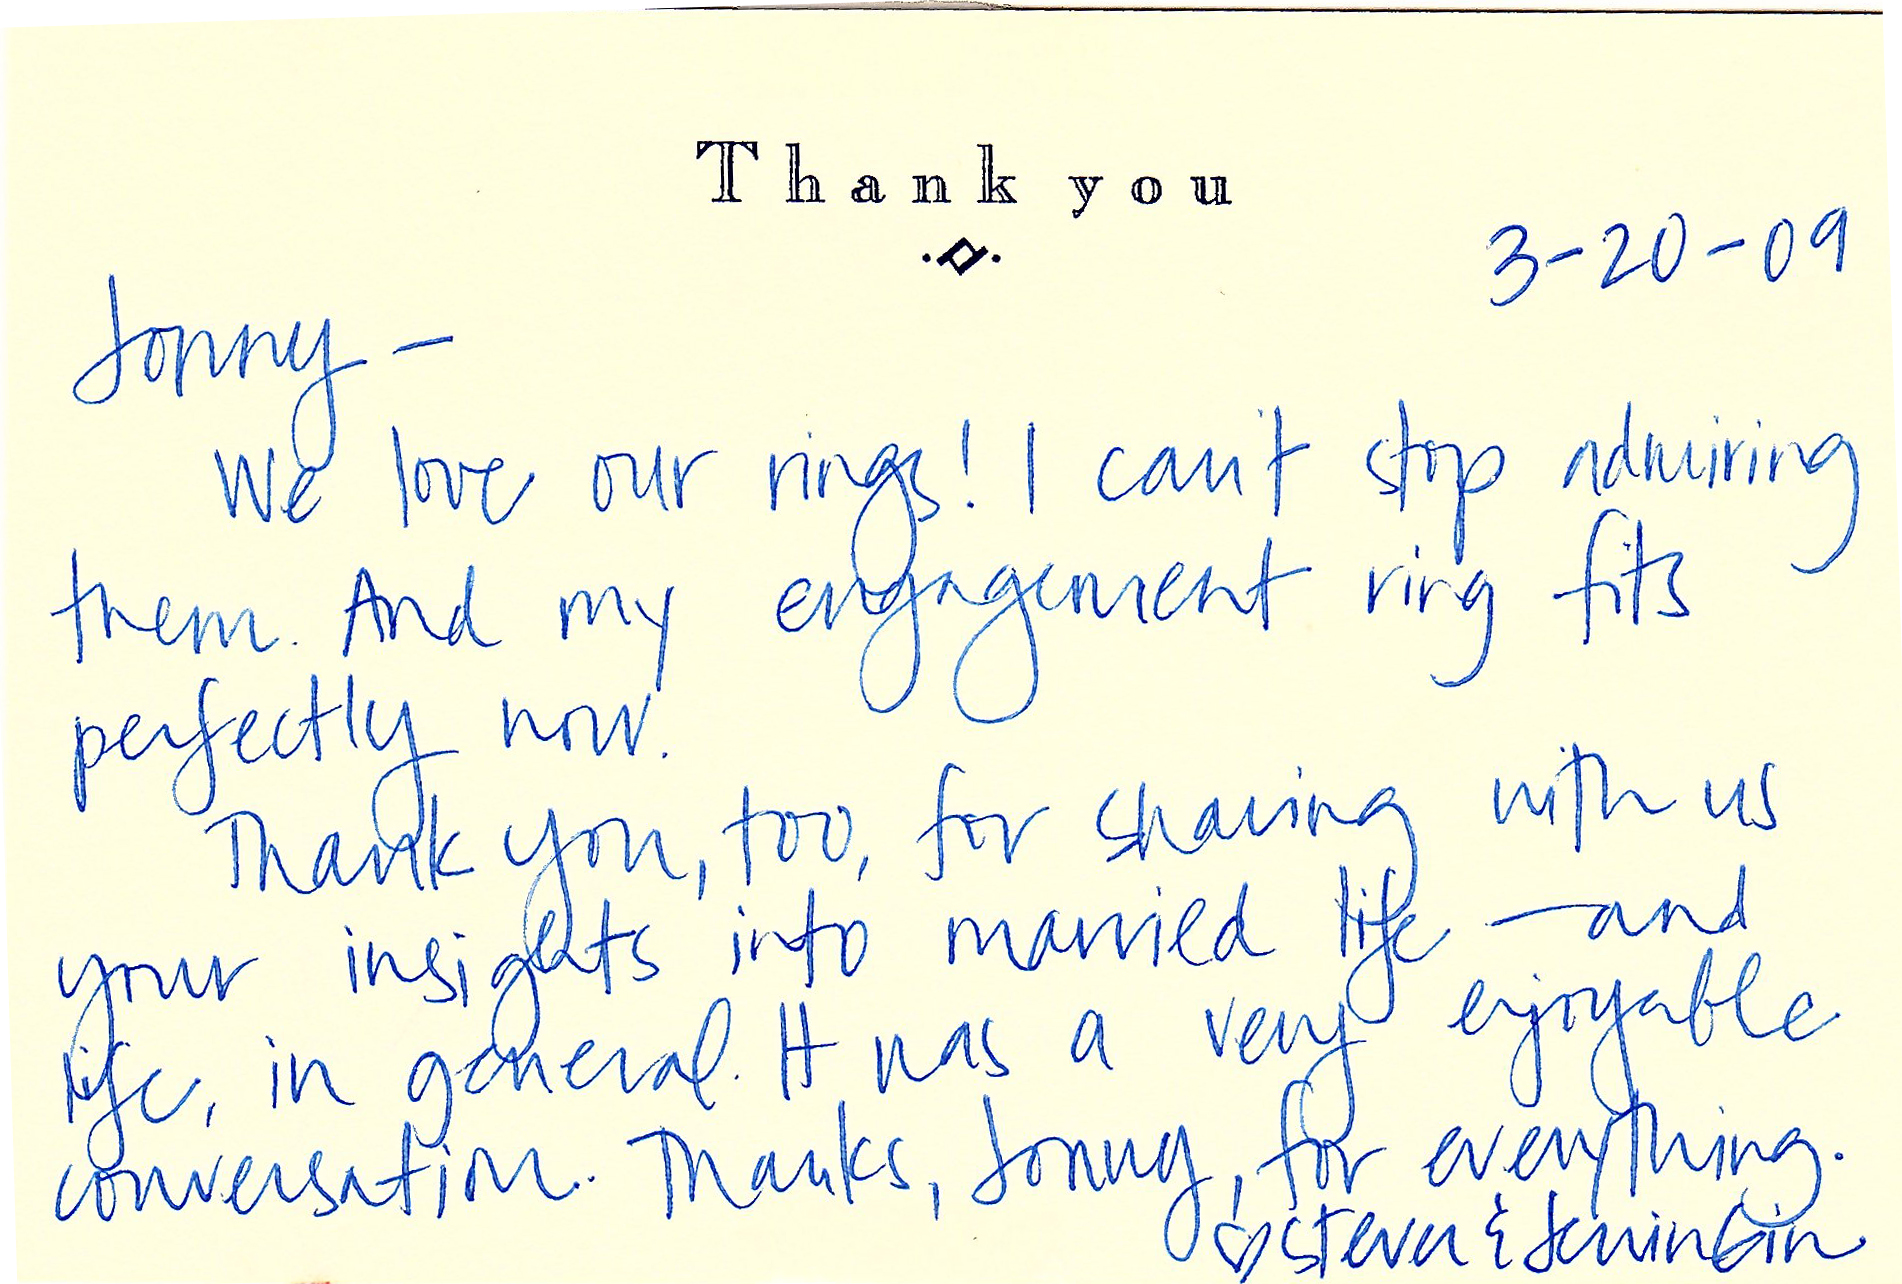 Thank you
3-20-09
Jonny —
We love our rings! I can't stop admiring
them. And my engagement ring fits
perfectly now.
Thank you, too, for sharing with us
your insights into married life — and
life, in general. It was a very enjoyable
conversation. Thanks, Jonny, for everything.
♡ Steven &